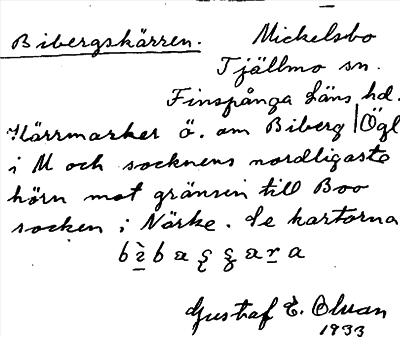 Bibergskärren. Mickelsbo
Tjällmo sn.
Finspånga läns hd.
Kärrmarker ö. om Biberg | Ögl
i M och socknens nordligaste
hörn mot gränsen till Boo
socken i Närke. Se kartorna
Gustaf E. Olsson
1933